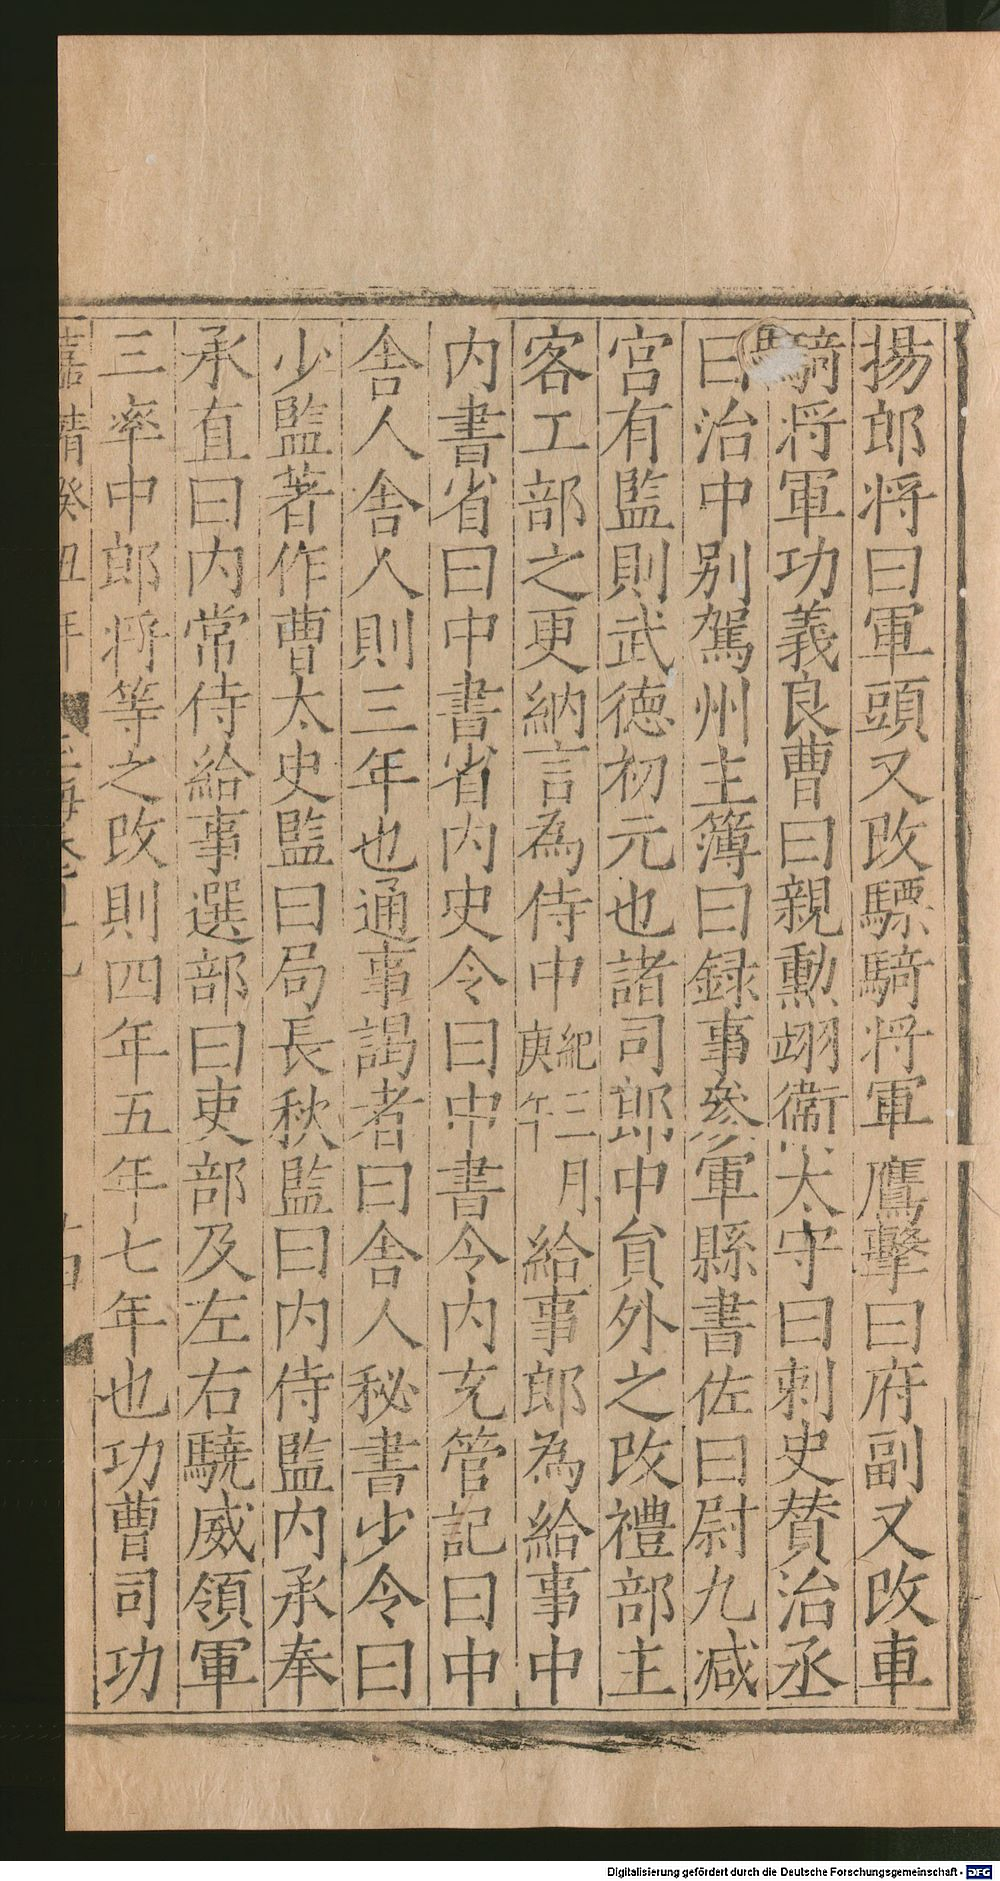 揚郎将曰軍頭又改驃騎将軍鷹擊曰府副又改車
騎将軍功義良曹曰親勲翊衛太守曰刺史賛治丞
曰治中别駕州主簿曰録事參軍縣書佐曰尉九减
宮有監則武德初元也諸司郎中貟外之改禮部主
客工部之更納言為侍中紀三月庚午給事郎為給事中
内書省曰中書省内史令曰中書令内充管記曰中
舎人舎人則三年也通事謁者曰舎人秘書少令曰
少監著作曹太史監曰局長秋監曰内侍監内承奉
承直曰内常侍給事選部曰吏部及左右驍威領軍
三率中郎将等之改則四年五年七年也功曹司功
嘉靖癸丑年
Digitalisierung gefördert durch die Deutsche Forschungsgemeinschaft - DFG